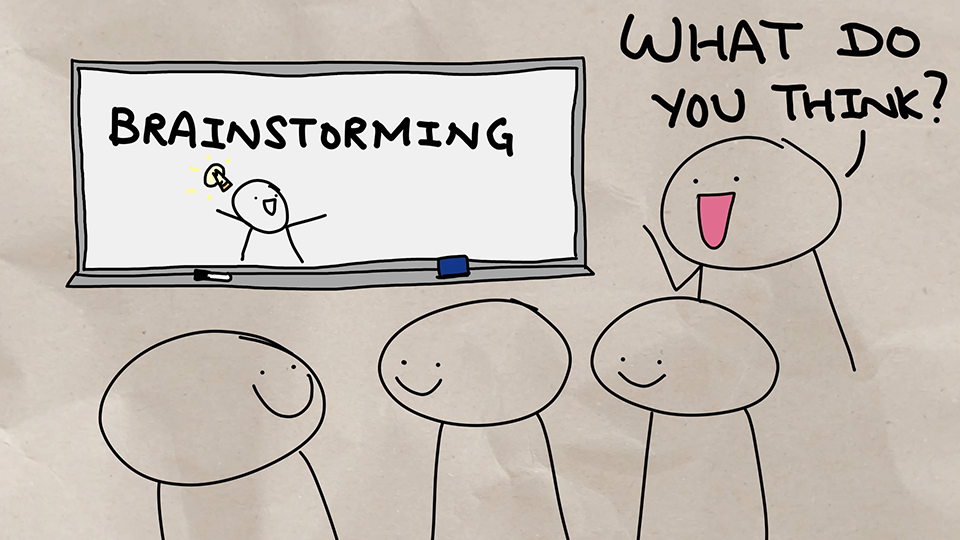 BRAINSTORMING
WHAT DO
YOU THINK?